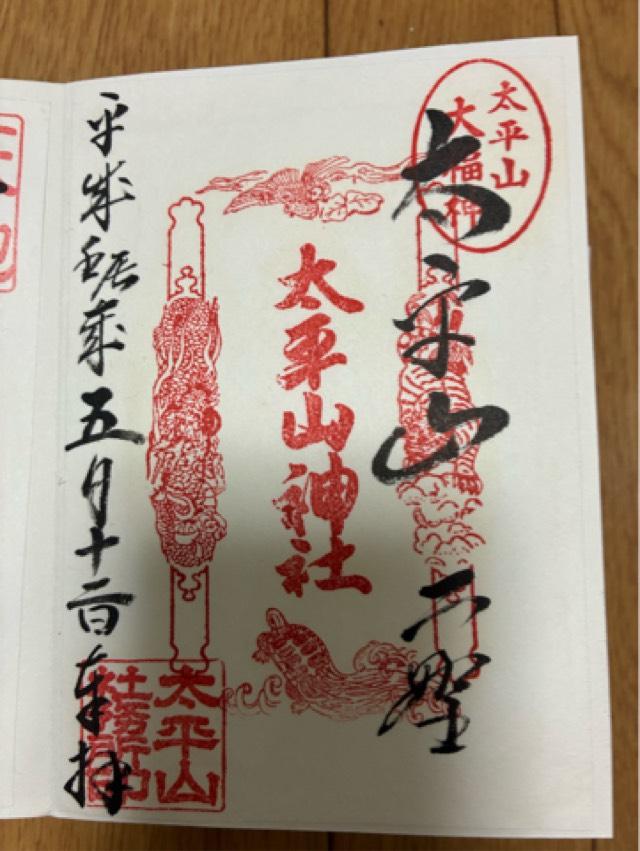 太平山
大福神
太平山
太平山神社
平成壬辰歳五月十二日奉拝
太平山
社務所印